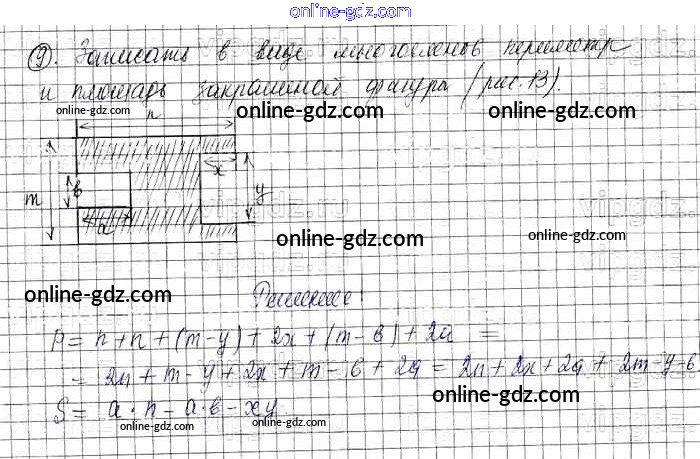 online-gdz.com
9). Записать в виде многочленов периметр
и площадь закрашенной фигуры (рис. 13).
online-gdz.com online-gdz.com online-gdz.com
n
x
m в y
a
vipgdz.ru
online-gdz.com online-gdz.com
online-gdz.com
Решение:
P = n + n + (m - y) + 2x + (m - в) + 2a =
= 2n + m - y + 2x + m - в + 2a = 2n + 2x + 2a + 2m - y - в
online-gdz.com
S = a · n - a · в - xy
online-gdz.com online-gdz.com